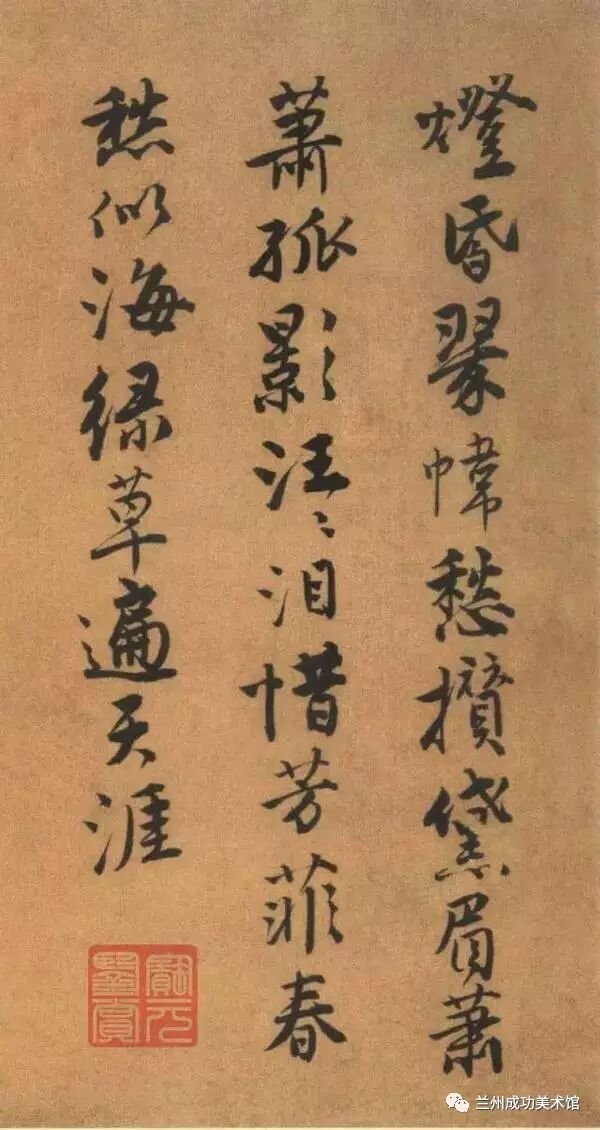 燈昏翠幃愁攢黛眉蕭
蕭孤影汪〻泪惜芳菲春
愁似海綠草遍天涯
兰州成功美术馆